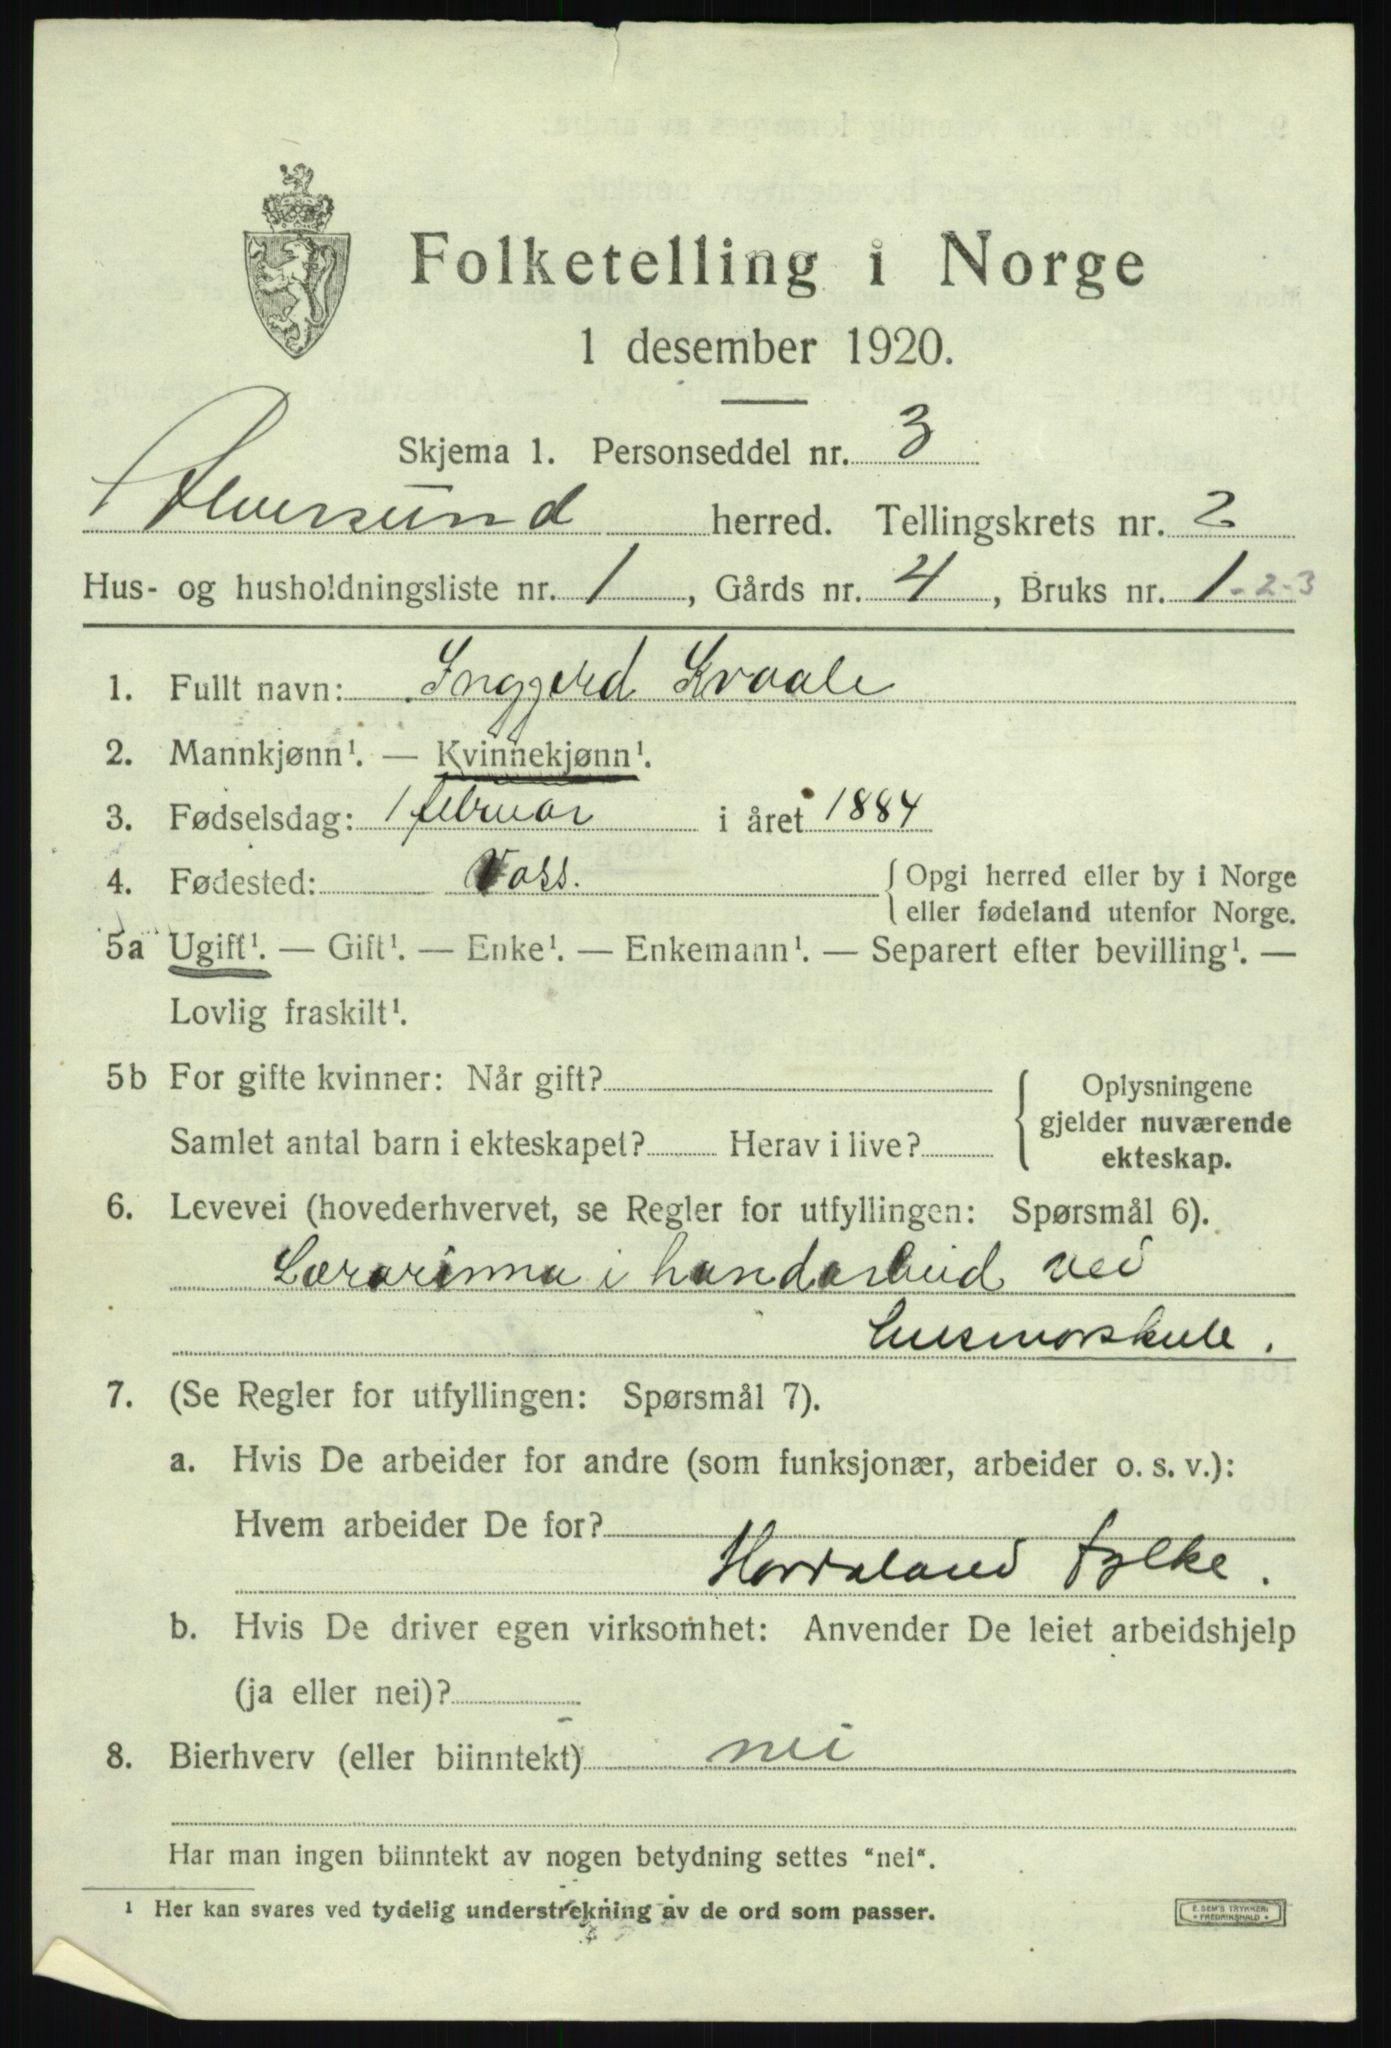 Folketelling i Norge
1 desember 1920.
Skjema 1. Personseddel nr. 3
Alversund herred. Tellingskrets nr. 2
Hus- og husholdningsliste nr. 1, Gårds nr. 4, Bruks nr. 1-2-3
1. Fullt navn: Inggjerd Kvaale
2. Mannkjønn¹. — Kvinnekjønn¹.
3. Fødselsdag: 1 februar i året 1884
4. Fødested: Voss. { Opgi herred eller by i Norge
eller fødeland utenfor Norge.
5a Ugift¹. — Gift¹. — Enke¹. — Enkemann¹. — Separert efter bevilling¹. —
Lovlig fraskilt¹.
5b For gifte kvinner: Når gift? { Oplysningene
gjelder nuværende
Samlet antal barn i ekteskapet? Herav i live?
ekteskap.
6. Levevei (hovederhvervet, se Regler for utfyllingen: Spørsmål 6).
Lærarinna i handarbeid ved
husmorskule.
7. (Se Regler for utfyllingen: Spørsmål 7).
a. Hvis De arbeider for andre (som funksjonær, arbeider o. s. v.):
Hvem arbeider De for?
Hordaland fylke.
b. Hvis De driver egen virksomhet: Anvender De leiet arbeidshjelp
(ja eller nei)?
8. Bierhverv (eller biinntekt) nei
Har man ingen biinntekt av nogen betydning settes "nei".
¹ Her kan svares ved tydelig understrekning av de ord som passer.
E. SEM'S TRYKKERI
FREDRIKSHALD